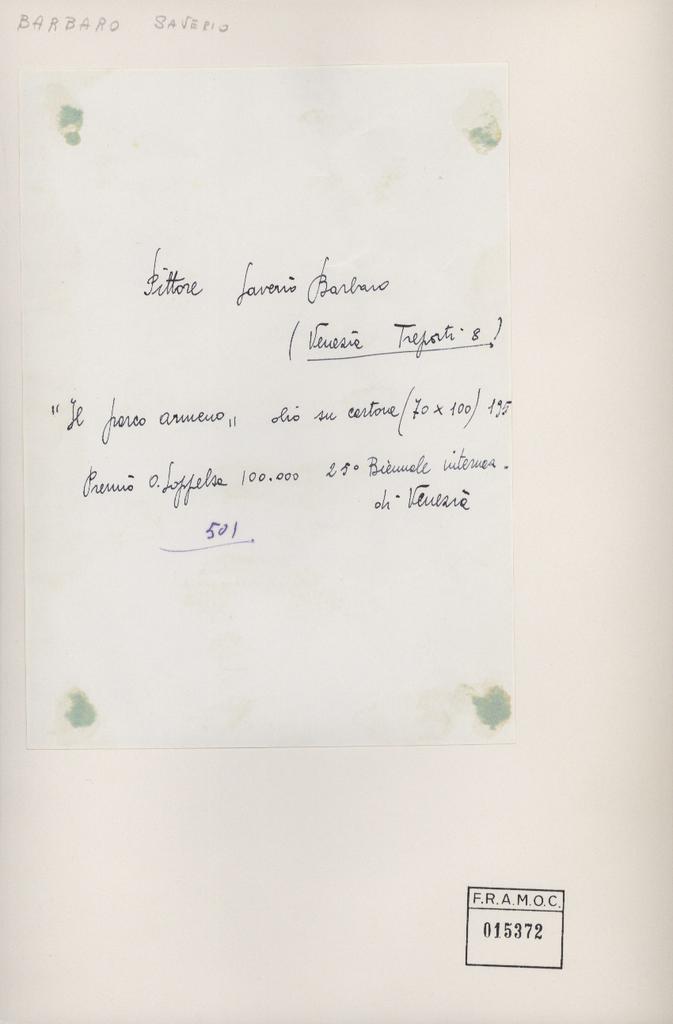 BARBARO SAVERIO
Pittore Saverio Barbaro
(Venezia Treporti 8)
"Il parco armeno" olio su cartone (70 x 100) 195
Premio O. Soppelsa 100.000 25° Biennale internaz.
di Venezia
501
F.R.A.M.O.C.
015372